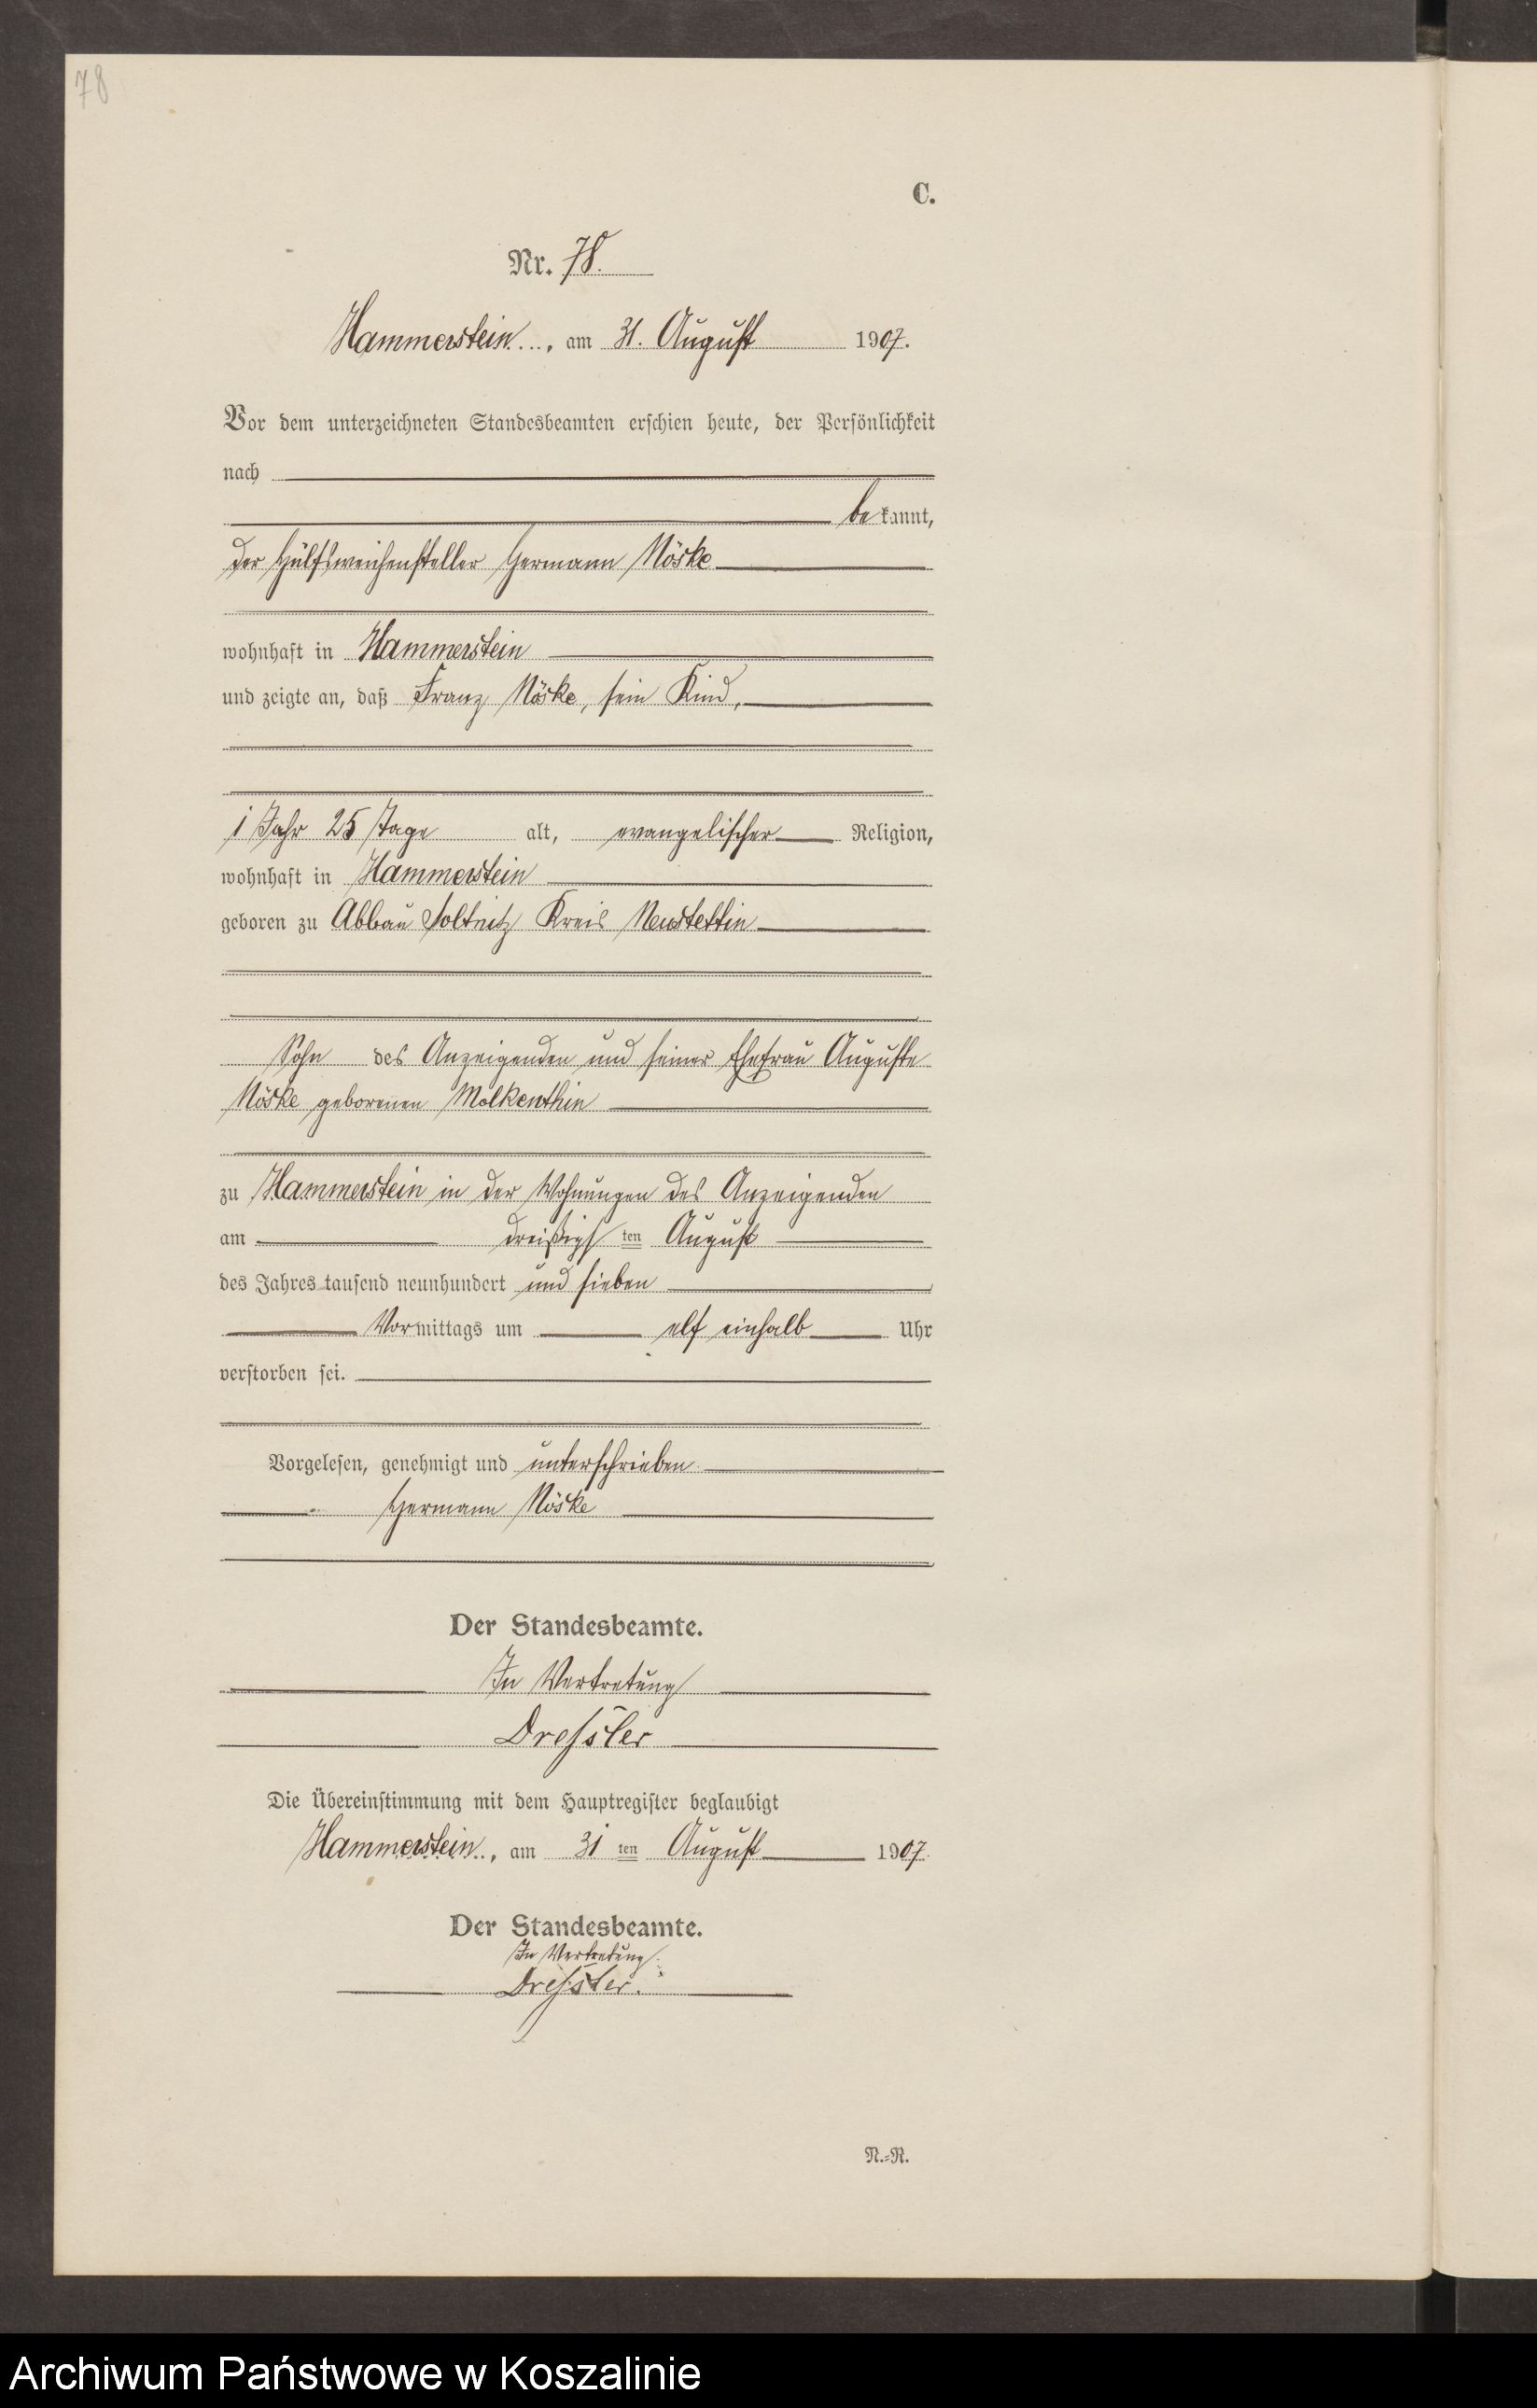 78
C.
Nr. 78.
Hammerstein, am 31. August 1907.
Vor dem unterzeichneten Standesbeamten erschien heute, der Persönlichkeit
nach
bekannt,
der Hülfsweichensteller Hermann Nöske
wohnhaft in Hammerstein
und zeigte an, daß Franz Nöske, sein Kind,
1 Jahr 25 Tage alt, evangelischer Religion,
wohnhaft in Hammerstein
geboren zu Abbau Soltnitz Kreis Neustettin
Sohn des Anzeigenden und seiner Ehefrau Auguste
Nöske geborenen Molkenthin
zu Hammerstein in der Wohnungen des Anzeigenden
am dreißigsten August
des Jahres tausend neunhundert und sieben
Vormittags um elf einhalb Uhr
verstorben sei.
Vorgelesen, genehmigt und unterschrieben
Hermann Nöske
Der Standesbeamte.
In Vertretung
Dressler
Die Übereinstimmung mit dem Hauptregister beglaubigt
Hammerstein, am 31ten August 1907.
Der Standesbeamte.
In Vertretung.
Dressler.
N.=R.
Archiwum Państwowe w Koszalinie